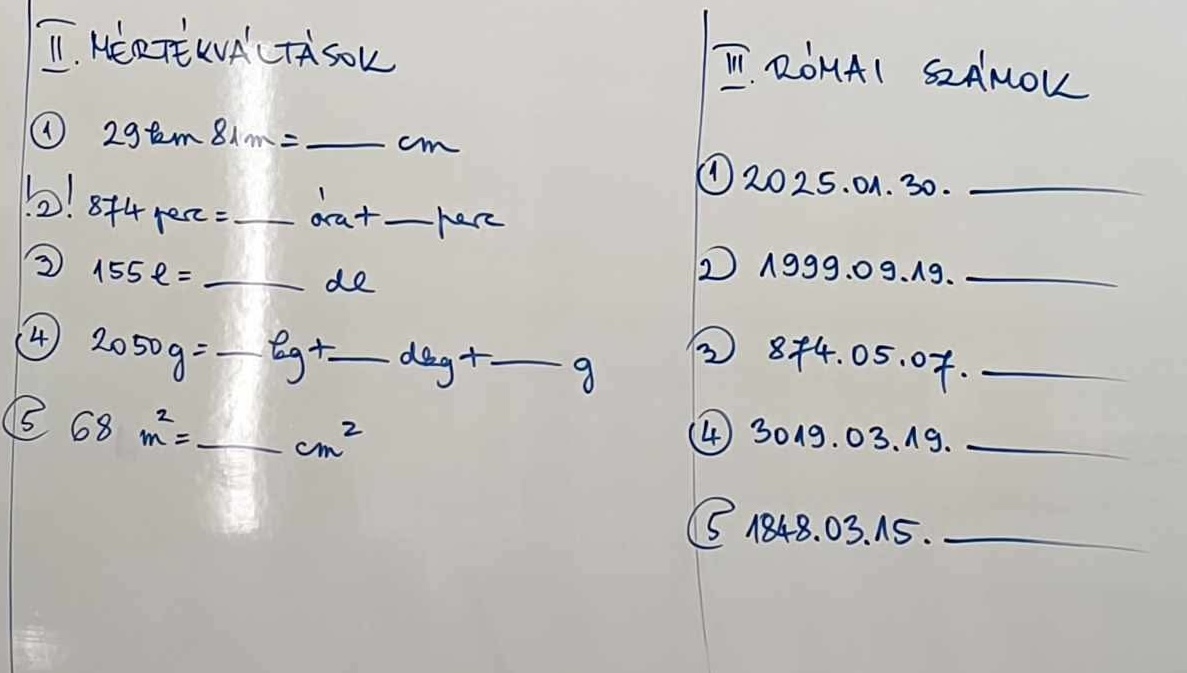 II. MÉRTÉKVÁLTÁSOK
① 29 km 81 m = ___ cm
!2! 874 perc = ___ óra + ___ perc
③ 155 l = ___ dl
④ 2050 g = ___ kg + ___ dkg + ___ g
⑤ 68 m² = ___ cm²
III. RÓMAI SZÁMOK
① 2025.01.30. ___
② 1999.09.19. ___
③ 874.05.07. ___
④ 3019.03.19. ___
⑤ 1848.03.15. ___